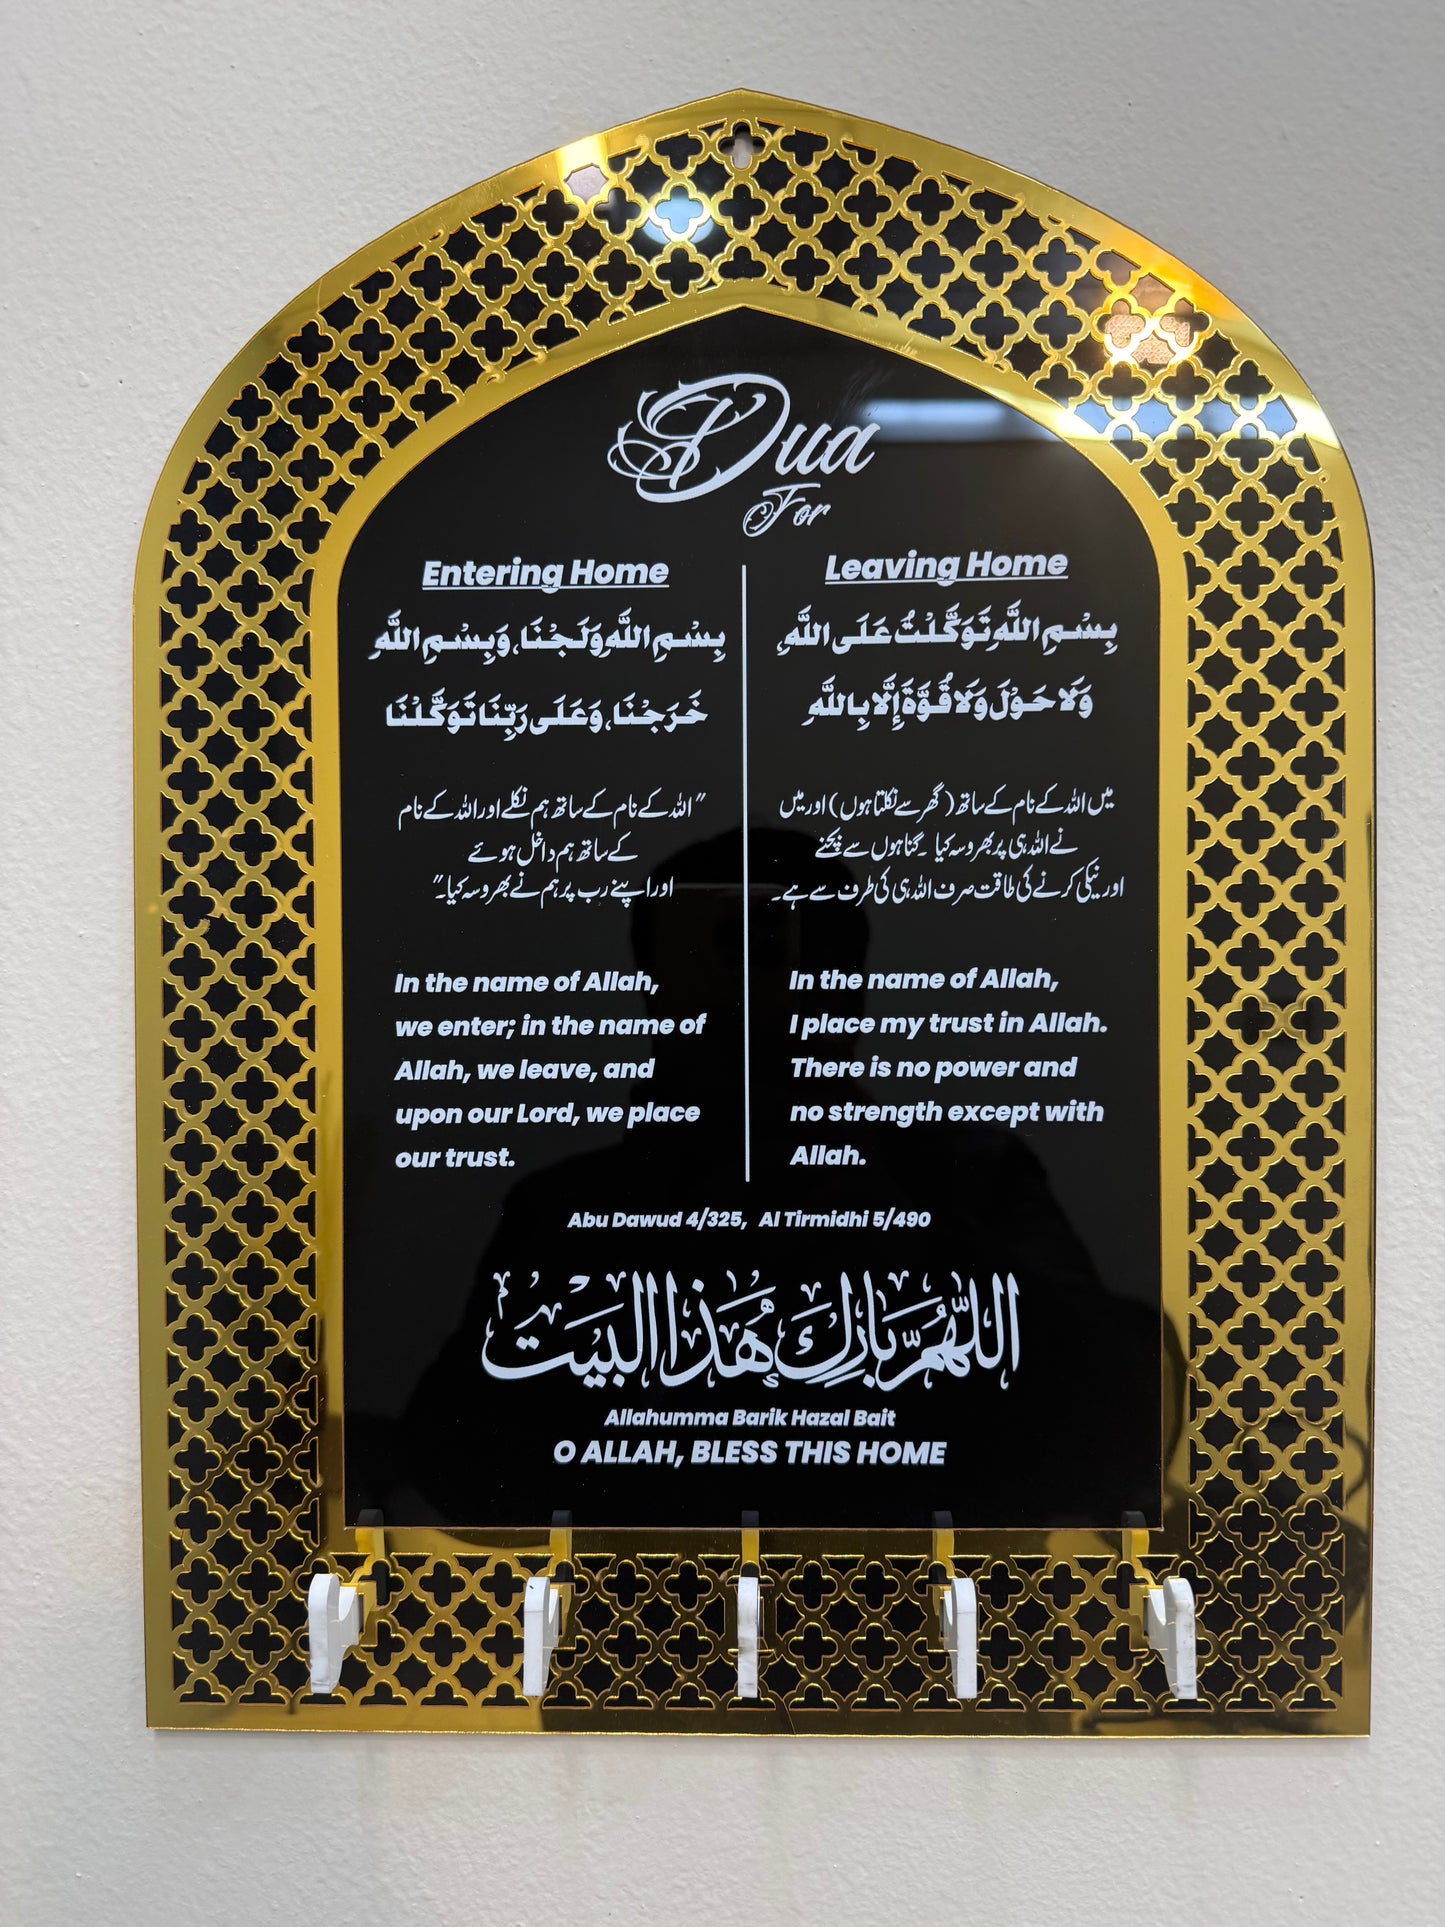 Dua
For
Entering Home
بِسْمِ اللَّهِ وَلَجْنَا، وَبِسْمِ اللَّهِ
خَرَجْنَا، وَعَلَى رَبِّنَا تَوَكَّلْنَا
"اللہ کے نام کے ساتھ ہم نکلے اور اللہ کے نام
کے ساتھ ہم داخل ہوئے
اور اپنے رب پر ہم نے بھروسہ کیا۔"
In the name of Allah,
we enter; in the name of
Allah, we leave, and
upon our Lord, we place
our trust.
Leaving Home
بِسْمِ اللَّهِ تَوَكَّلْتُ عَلَى اللَّهِ،
وَلَا حَوْلَ وَلَا قُوَّةَ إِلَّا بِاللَّهِ
میں اللہ کے نام کے ساتھ (گھر سے نکلتا ہوں) اور میں
نے اللہ ہی پر بھروسہ کیا ۔گناہوں سے بچنے
اور نیکی کرنے کی طاقت صرف اللہ ہی کی طرف سے ہے۔
In the name of Allah,
I place my trust in Allah.
There is no power and
no strength except with
Allah.
Abu Dawud 4/325, Al Tirmidhi 5/490
اللَّهُمَّ بَارِكْ هَذَا البَيْتَ
Allahumma Barik Hazal Bait
O ALLAH, BLESS THIS HOME